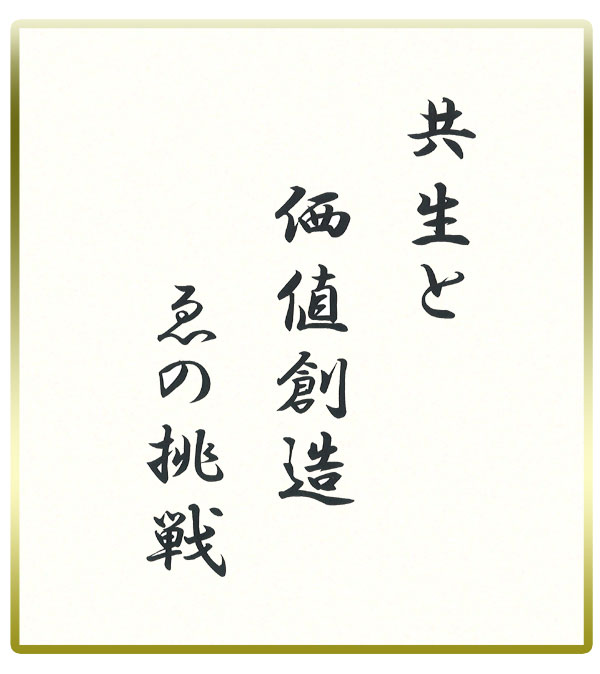 共生と
価値創造
ゑの挑戦